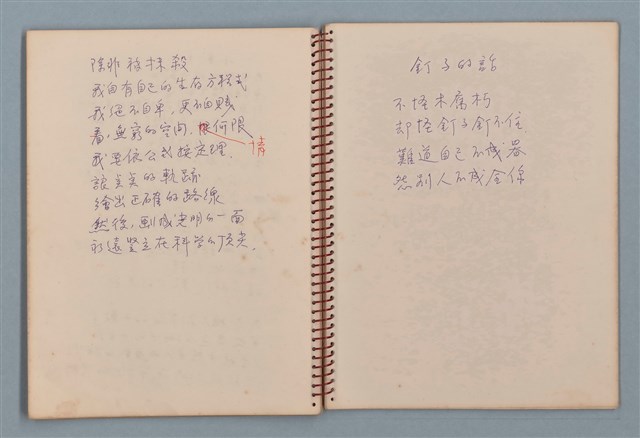 除非被抹殺
我自有自己的生存方程式
我絕不自卑，更不自賤
看，無窮的空間，恨何限
情
我要依公式按定理
讓美美的軌跡
繪出正確的路線
然後，剛成光明的一面
永遠豎立在科學的頂尖。
釘子的話
不怪木腐朽
却怪釘子釘不住
難道自己不成器
怨別人不成全你